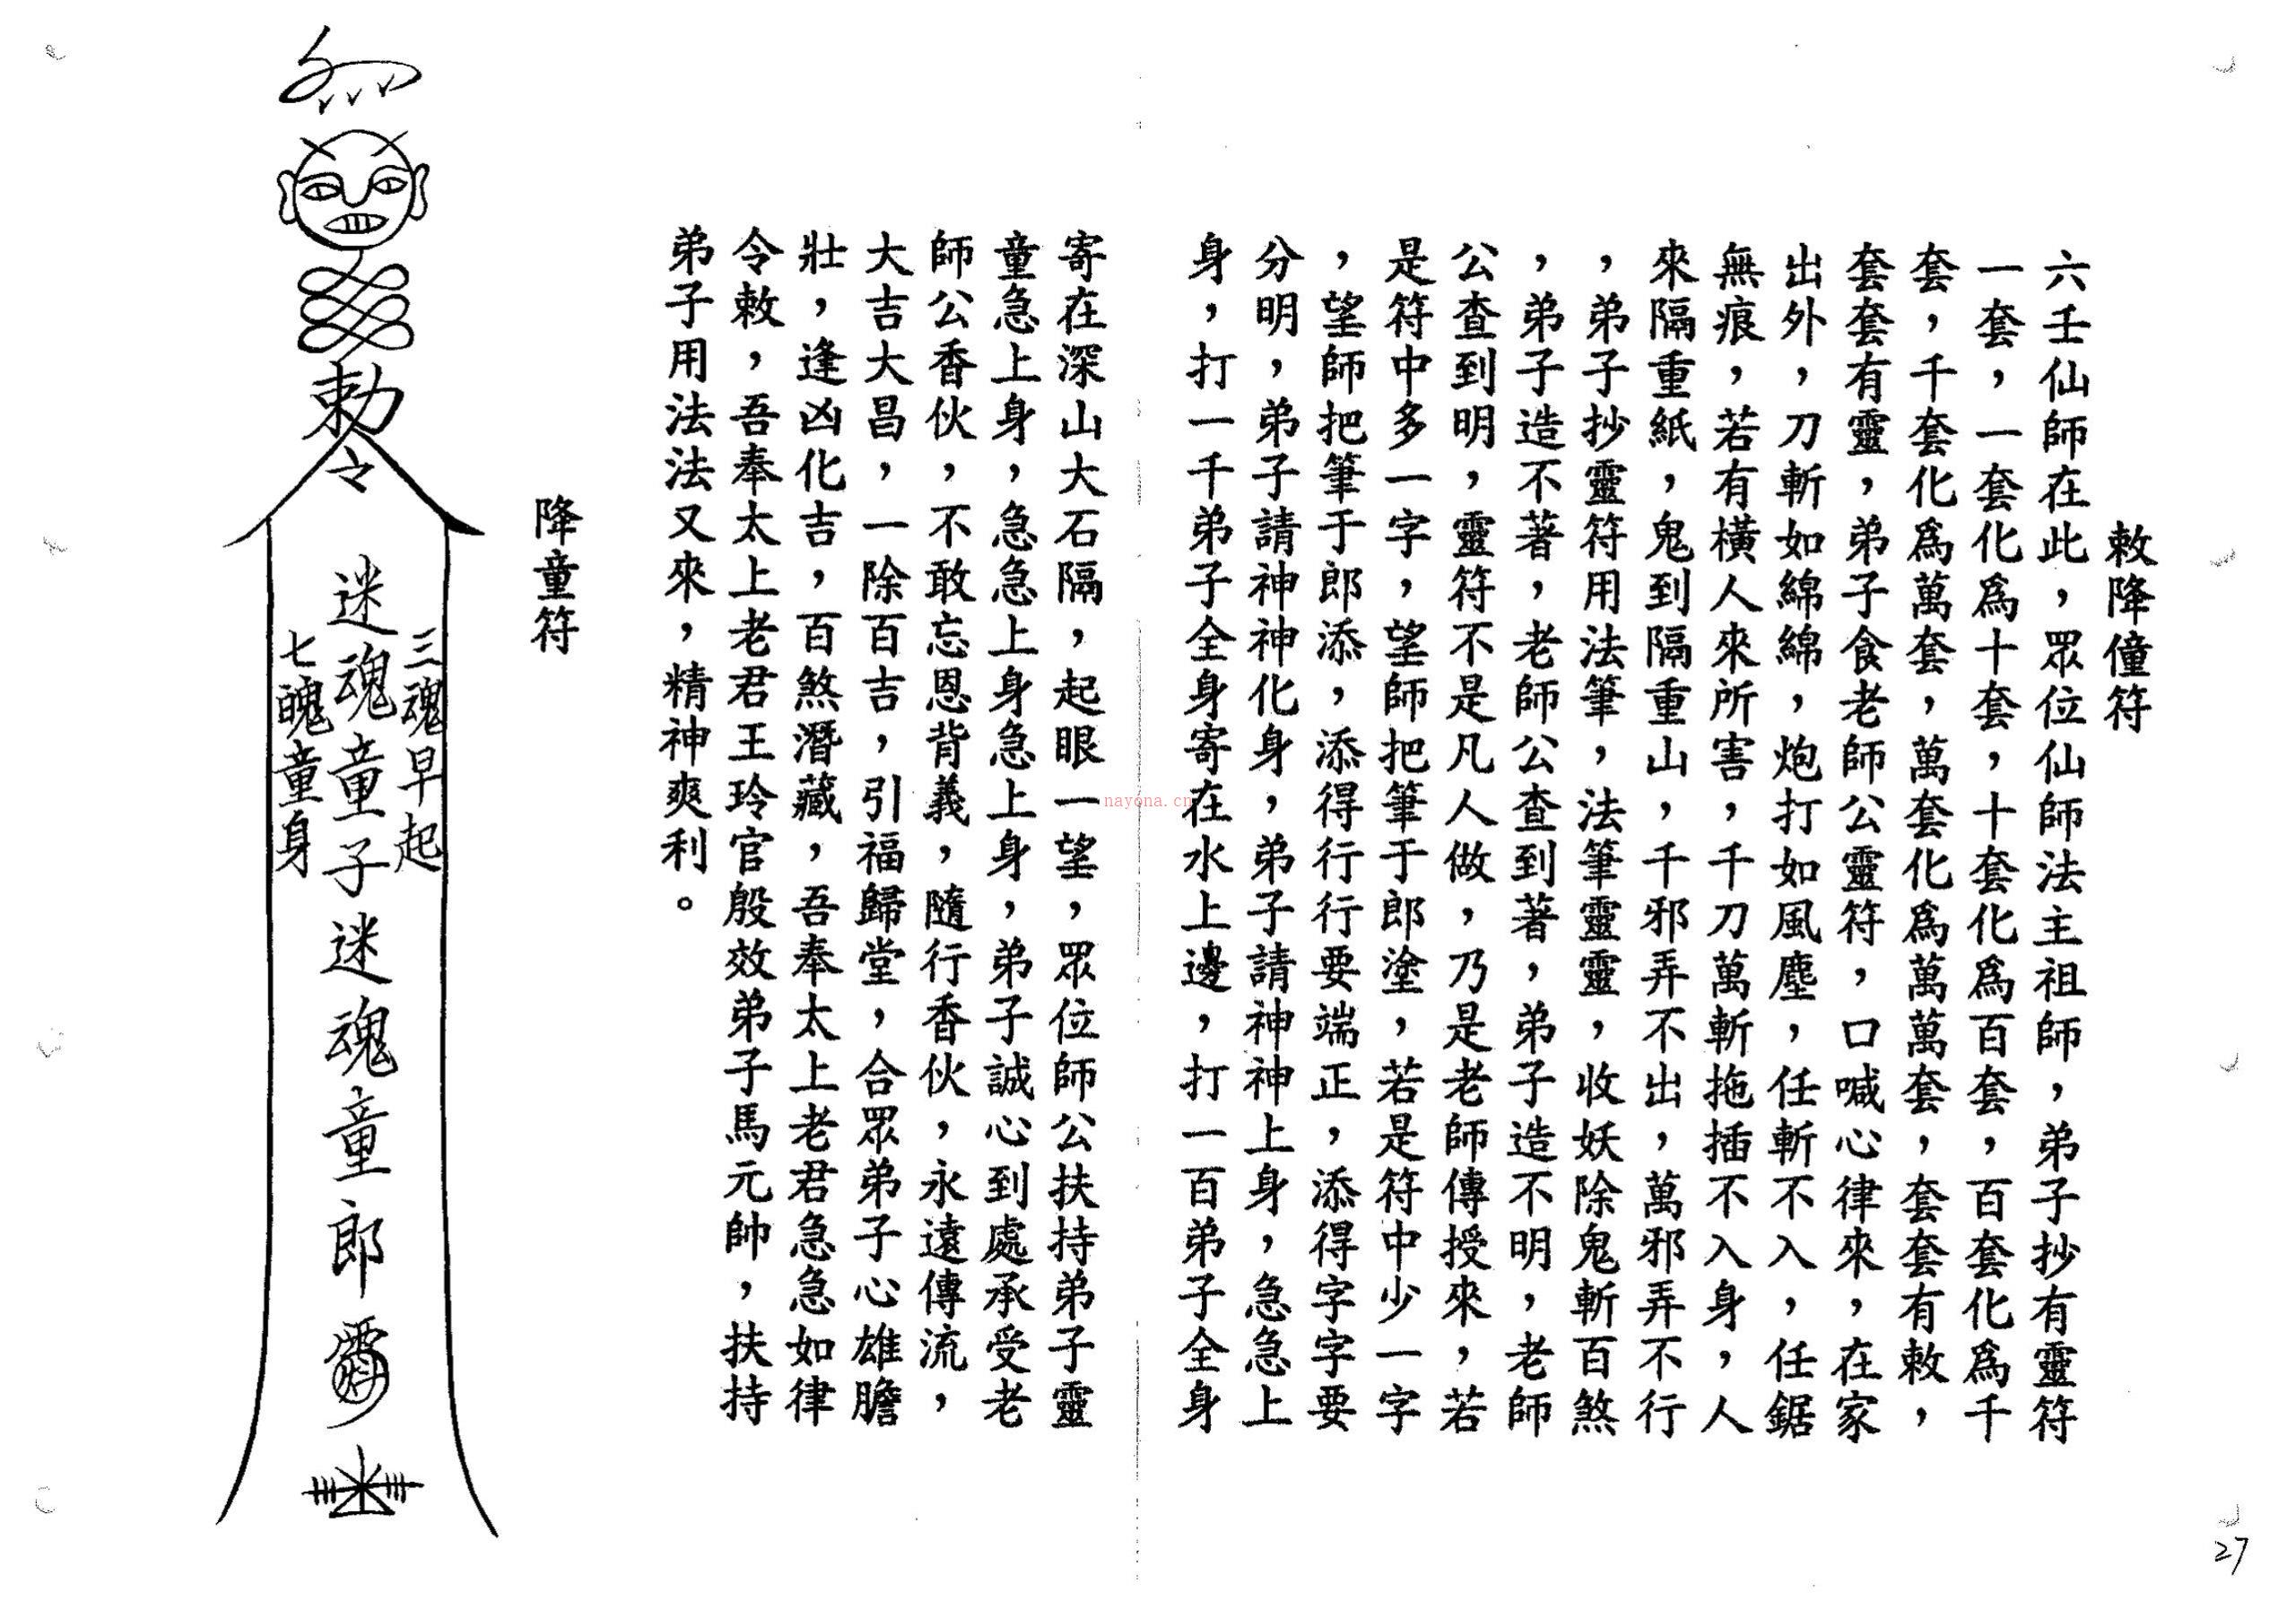 敕降僮符
六壬仙師在此，眾位仙師法主祖師，弟子抄有靈符
一套，一套化爲十套，十套化爲百套，百套化爲千
套，千套化爲萬套，萬套化爲萬萬套，套套有敕，
套套有靈，弟子食老師公靈符，口喊心律來，在家
出外，刀斬如綿綿，炮打如風塵，任斬不入，任鋸
無痕，若有橫人來所害，千刀萬斬拖插不入身，人
來隔重紙，鬼到隔重山，千邪弄不出，萬邪弄不行
，弟子抄靈符用法筆，法筆靈靈，收妖除鬼斬百煞
，弟子造不著，老師公查到著，弟子造不明，老師
公查到明，靈符不是凡人做，乃是老師傳授來，若
是符中多一字，望師把筆于郎塗，若是符中少一字
，望師把筆于郎添，添得行行要端正，添得字字要
分明，弟子請神神化身，弟子請神神上身，急急上
身，打一千弟子全身寄在水上邊，打一百弟子全身
寄在深山大石隔，起眼一望，眾位師公扶持弟子靈
童急上身，急急上身急上身，弟子誠心到處承受老
師公香伙，不敢忘恩背義，隨行香伙，永遠傳流，
大吉大昌，一除百吉，引福歸堂，合眾弟子心雄膽
壯，逢凶化吉，百煞潛藏，吾奉太上老君急急如律
令敕，吾奉太上老君王玲官殷效弟子馬元帥，扶持
弟子用法法又來，精神爽利。
降童符
敕令
三魂早起
迷魂童子迷魂童郎
七魄童身
27
nayona.cn